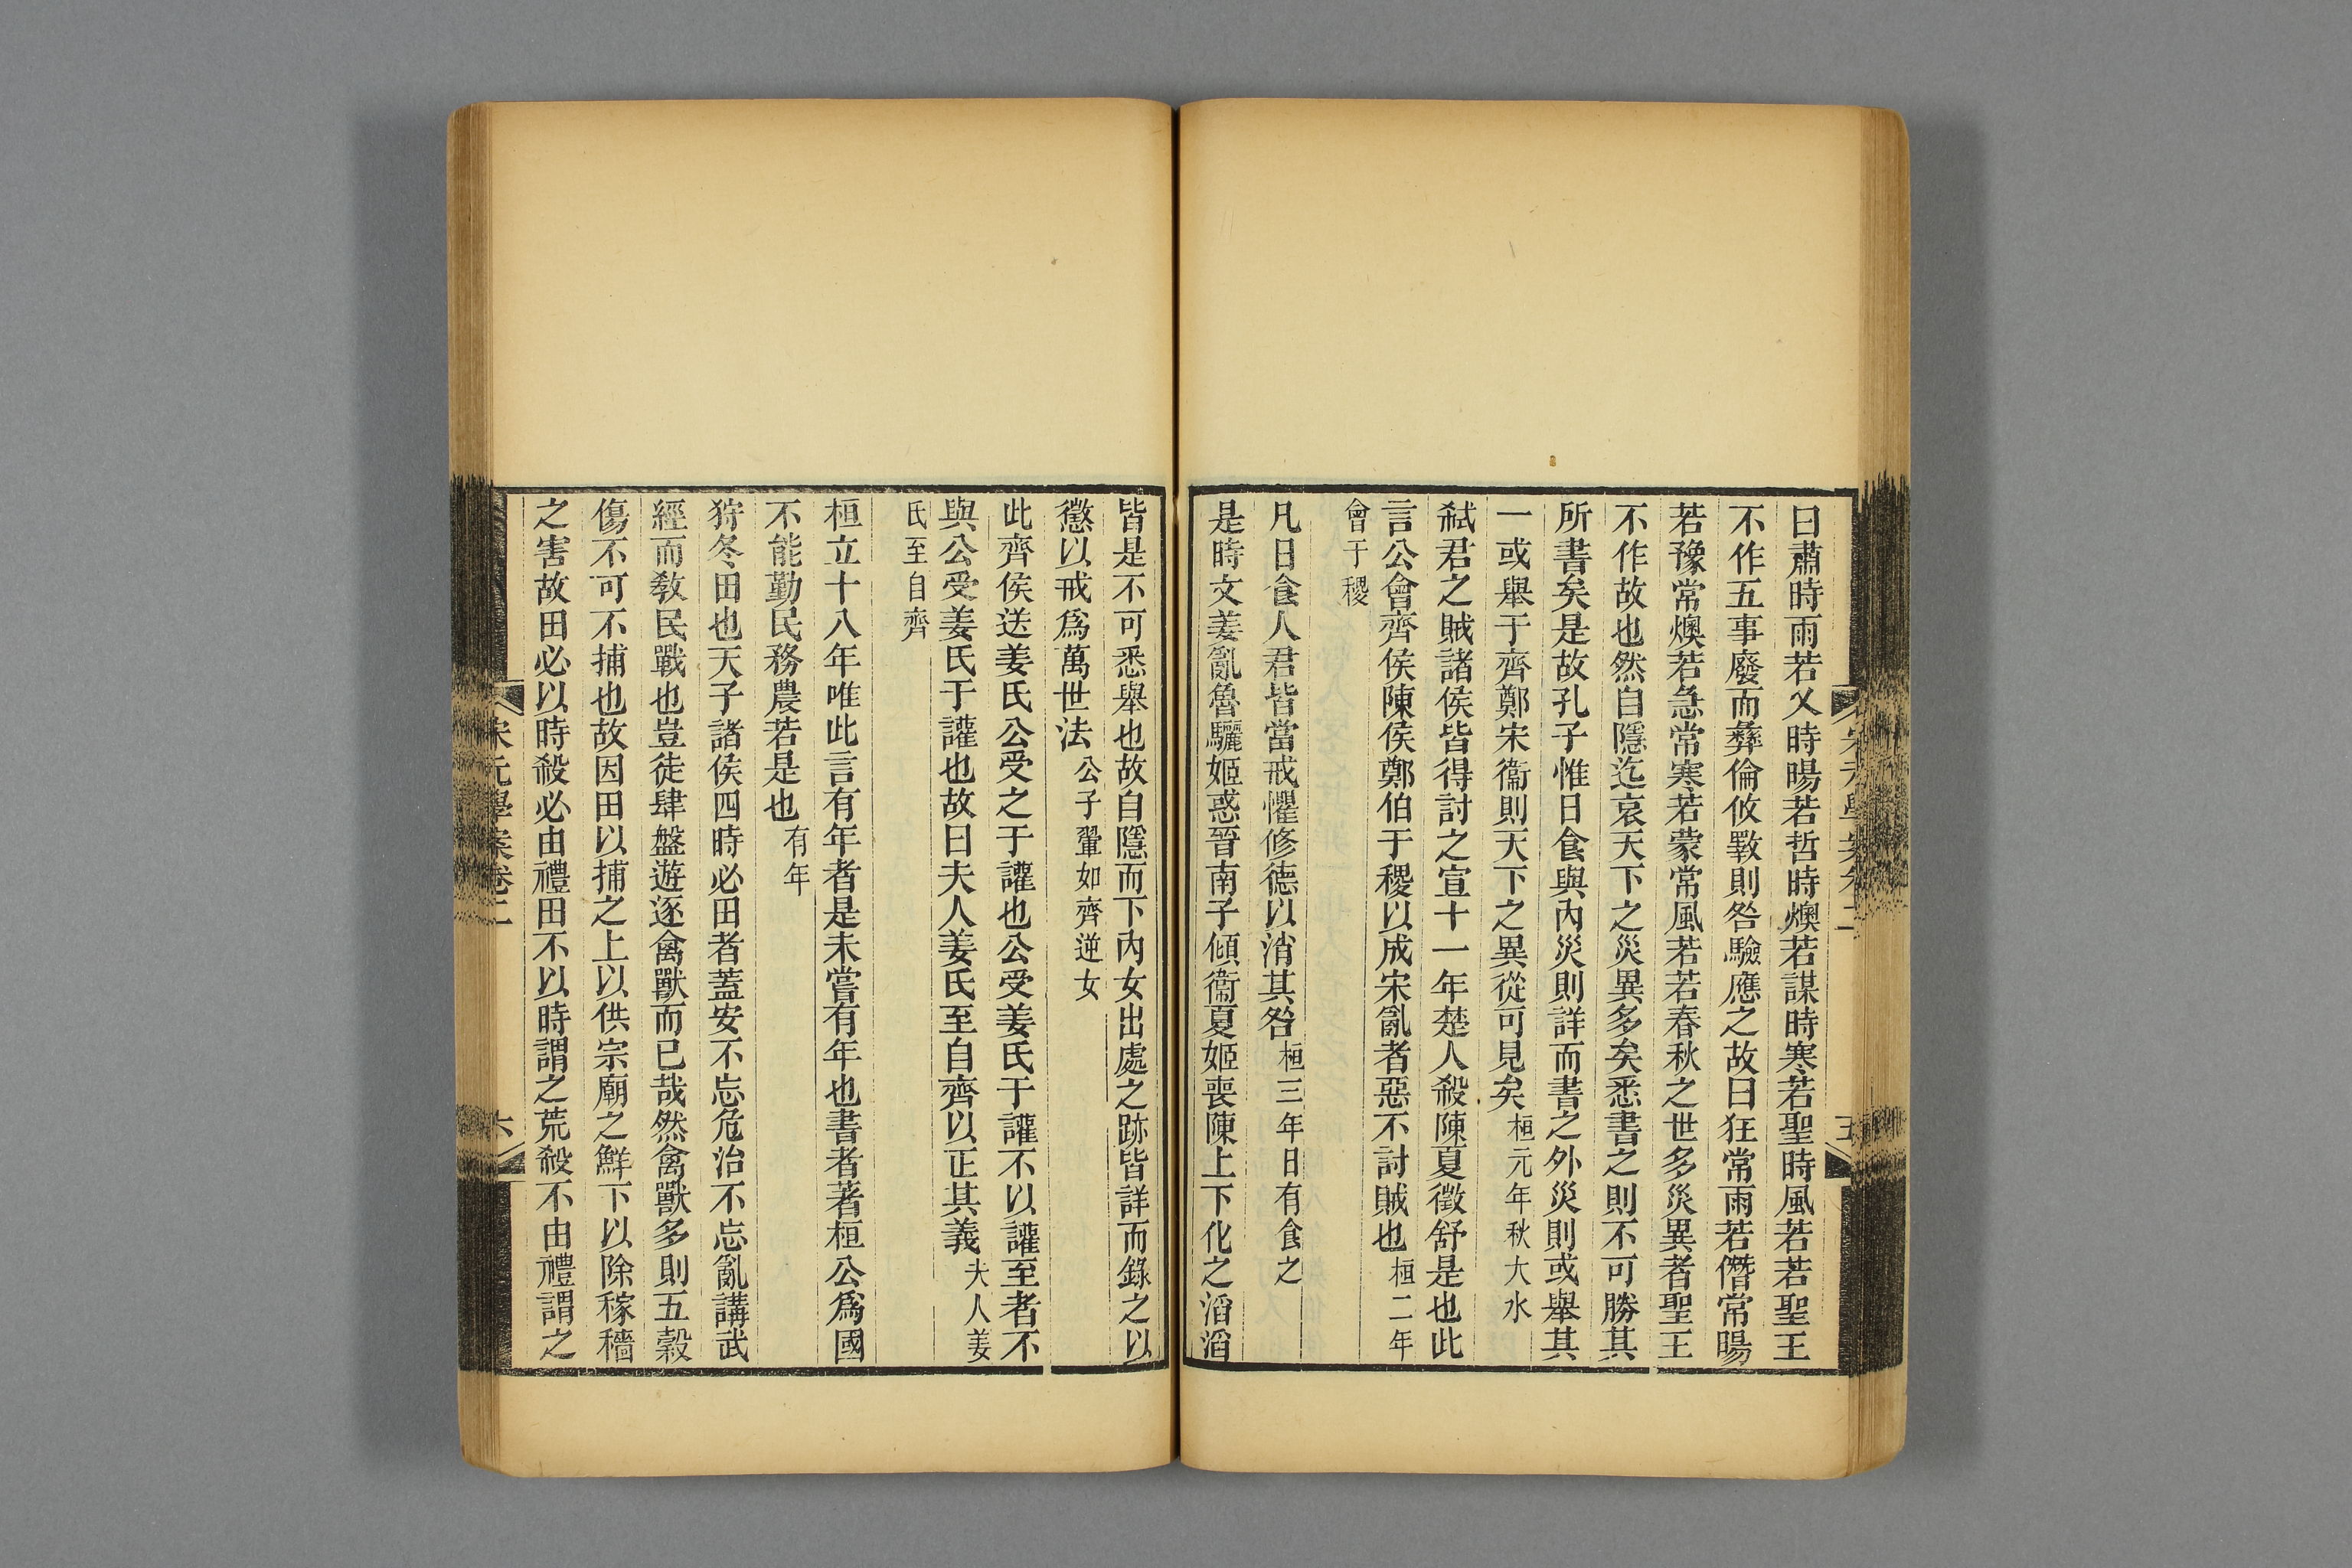 曰肅時雨若乂時暘若哲時燠若謀時寒若聖時風若若聖王
不作五事廢而彝倫攸斁則咎驗應之故曰狂常雨若僭常暘
若豫常燠若急常寒若蒙常風若若春秋之世多災異者聖王
不作故也然自隱迄哀天下之災異多矣悉書之則不可勝其
所書矣是故孔子惟日食與內災則詳而書之外災則或舉其
一或舉于齊鄭宋衞則天下之異從可見矣桓元年秋大水
弒君之賊諸侯皆得討之宣十一年楚人殺陳夏徵舒是也此
言公會齊侯陳侯鄭伯于稷以成宋亂者惡不討賊也桓二年
會于稷
凡日食人君皆當戒懼修德以消其咎桓三年日有食之
是時文姜亂魯驪姬惑晉南子傾衞夏姬喪陳上下化之滔滔
皆是不可悉舉也故自隱而下內女出處之跡皆詳而錄之以
懲以戒爲萬世法公子翬如齊逆女
此齊侯送姜氏公受之于讙也公受姜氏于讙不以讙至者不
與公受姜氏于讙也故曰夫人姜氏至自齊以正其義夫人姜
氏至自齊
桓立十八年唯此言有年者是未嘗有年也書者著桓公爲國
不能勤民務農若是也有年
狩冬田也天子諸侯四時必田者蓋安不忘危治不忘亂講武
經而敎民戰也豈徒肆盤遊逐禽獸而已哉然禽獸多則五穀
傷不可不捕也故因田以捕之上以供宗廟之鮮下以除稼穡
之害故田必以時殺必由禮田不以時謂之荒殺不由禮謂之
宋元學案卷二
六